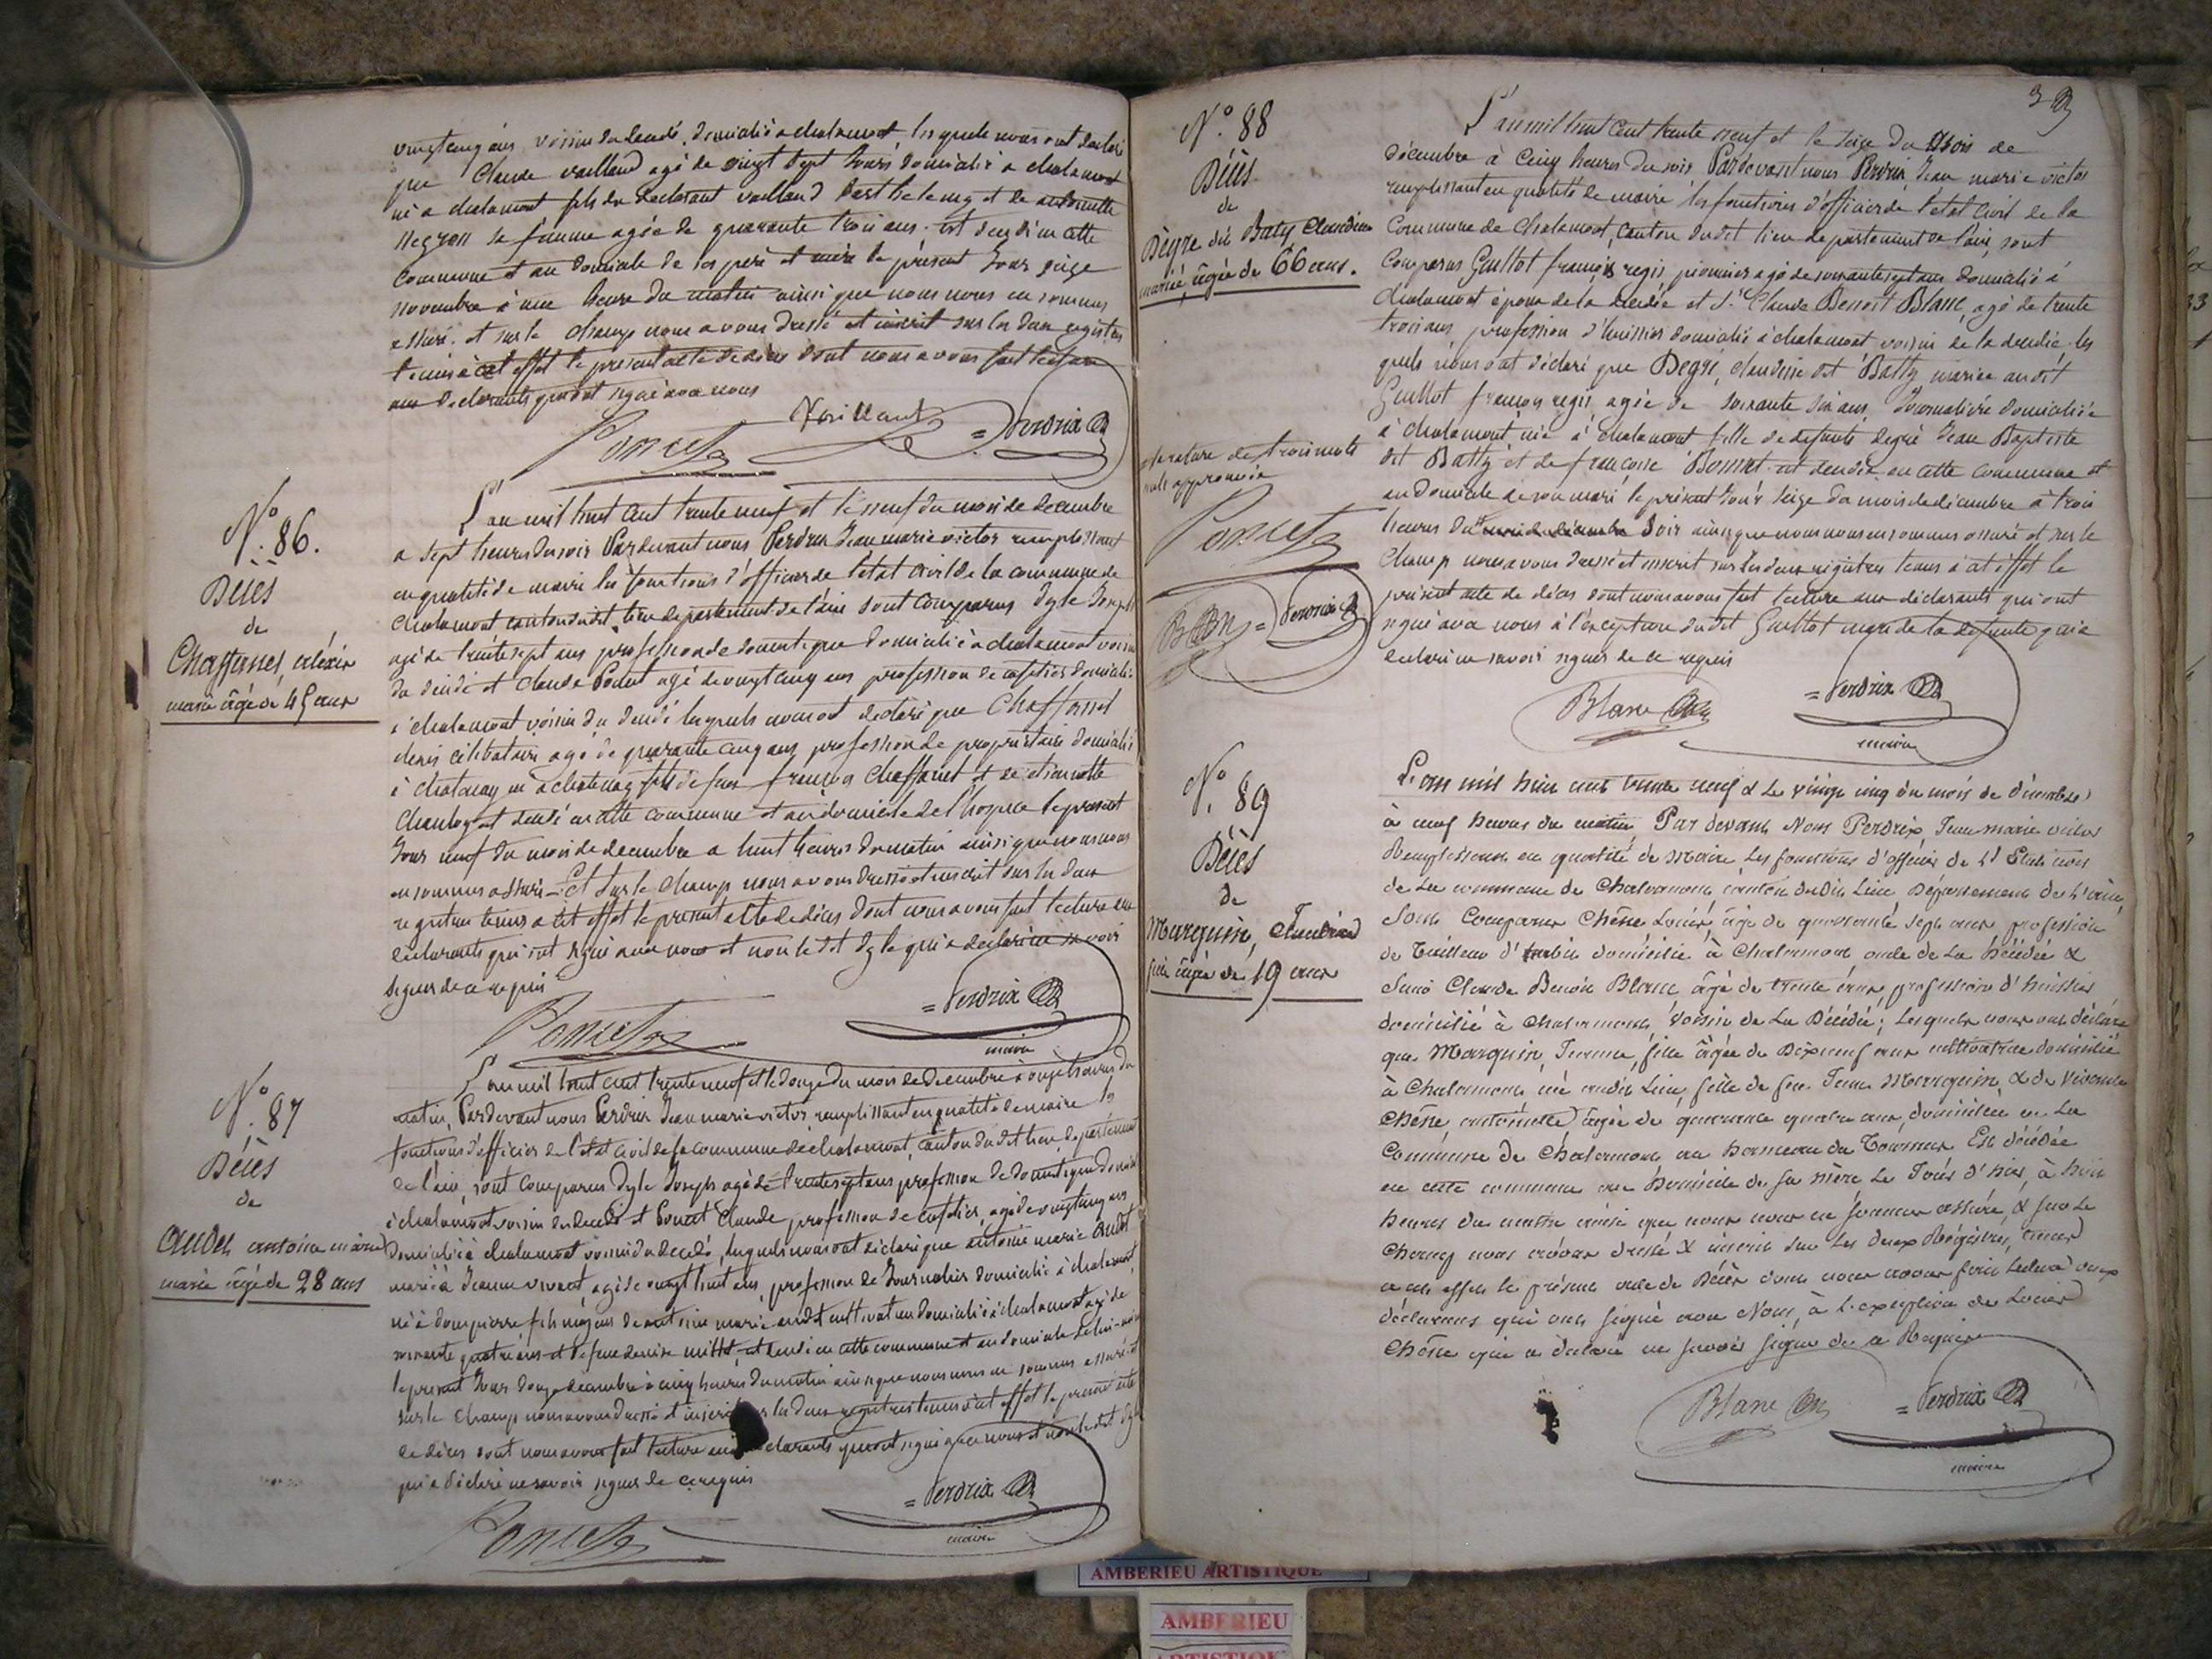 vingt cinq ans voisin du decedé, domicilié a chalamont, lesquels nous ont declaré
que Claude vailland agé de vingt sept jours domicilié a chalamont
né a chalamont fils du declarant vailland Barthelemy et de antoinette
sa femme agée de quarante trois ans. est decedé en cette
commune et au domicile de ses père et mère le présent jour seize
novembre à une heure du matin ainsi que nous nous en sommes
assuré. et sur le champ nous avons dressé et inscrit sur les deux registres
tenus à cet effet le present acte de décès dont nous avons fait lecture
aux declarants qui ont signé avec nous
Poncet Vaillant = Perdrix
N° 86.
Décès
de
Chaffanel, alexis
marié âgé de 45 ans
L'an mil huit cent trente neuf et le neuf du mois de decembre
a sept heures du soir Pardevant nous Perdrix Jean marie victor remplissant
en qualité de maire les fonctions d'officier de l'état civil de la commune de
chalamont canton dudit lieu departement de l'ain sont comparus Joseph
agé de trente sept ans profession de domestique domicilié à chalamont voisin
du decedé et claude Poncet agé de vingt cinq ans profession de cafetier domicilié
à chalamont voisin du decedé lesquels nous ont declaré que Chaffanel
alexis célibataire agé de quarante cinq ans profession de propriétaire domicilié
à chatenay né à chatenay fils de feu françois Chaffanel et de etiennette
est decedé en cette commune et au domicile de l'hospice le present
jour neuf du mois de decembre a huit heures du matin ainsi que nous nous
en sommes assuré. Et sur le champ nous avons dressé et inscrit sur les deux
registres tenus a cet effet le present acte de décès dont nous avons fait lecture aux
declarants qui ont signé avec nous et non ledit qui a declaré ne savoir
signer de ce requis
Poncet = Perdrix
maire
N° 87
Décès
de
Audet antoine marie
marié âgé de 28 ans
L'an mil huit cent trente neuf et le douze du mois de decembre à onze heures du
matin, Pardevant nous Perdrix Jean marie victor, remplissant en qualité de maire les
fonctions d'officier de l'état civil de la commune de chalamont, canton dudit lieu, departement
de l'ain, sont comparus Joseph agé de trente sept ans profession de domestique domicilié
à chalamont voisin du decedé et Poncet Claude profession de cafetier, agé de vingt cinq ans
domicilié à chalamont voisin du decedé, lesquels nous ont déclaré que antoine marie Audet
marié à Jeanne agé de vingt huit ans, profession de journalier domicilié à chalamont,
né à dompierre fils majeur de antoine marie audet cultivateur domicilié à chalamont agé de
soixante quatre ans et de feue denise est decedé en cette commune et au domicile de lui-même
le present jour douze decembre à cinq heures du matin ainsi que nous nous en sommes assuré et
sur le champ nous avons dressé et inscrit sur les deux registres tenus à cet effet le present acte
de décès dont nous avons fait lecture aux declarants qui ont signé avec nous et non ledit
qui a déclaré ne savoir signer de ce requis
Poncet = Perdrix
maire
N° 88
Décès
de
Dègre dit Baty Claudine
mariée, âgée de 66 ans.
rature de trois mots
nuls approuvée
Poncet
= Perdrix
L'an mil huit cent trente neuf et le seize du mois de
décembre à cinq heures du soir Pardevant nous Perdrix, Jean marie victor
remplissant en qualité de maire les fonctions d'officier de l'état civil de la
Commune de Chalamont, canton dudit lieu departement de l'ain, sont
Comparus Guillot françois regis, pionnier agé de soixante sept ans domicilié à
chalamont époux de la decedée et Sr. Claude Benoît Blanc, agé de trente
trois ans profession d'huissier domicilié à chalamont voisin de la decedée les
quels nous ont déclaré que Degré, claudine dit Batty mariée audit
Guillot françois regis agée de soixante six ans, journalière domiciliée
à chalamont née à chalamont fille de defunts degré Jean Baptiste
dit Batty et de françoise Bonnet est decedée en cette commune et
au domicile de son mari, le présent jour seize du mois de décembre à trois
heures du mois de décembre soir ainsi que nous nous en sommes assuré et sur le
champ nous avons dressé et inscrit sur les deux registres tenus à cet effet le
présent acte de décès dont nous avons fait lecture aux déclarants qui ont
signé avec nous à l'exception dudit Guillot mari de la defunte qui a
declaré ne savoir signer de ce requis
Blanc = Perdrix
maire
N° 89
Décès
de
Marguin, Claudine
fille âgée de 19 ans
L'an mil huit cent trente neuf & le vingt cinq du mois de décembre
à neuf heures du matin Par devant Nous Perdrix, Jean marie victor
Remplissant en qualité de Maire les fonctions d'officier de l'Etat civil
de la commune de Chalamont, canton dudit Lieu, Département de l'ain,
Sont Comparus Chêne Louis, âgé de quarante sept ans profession
de Tailleur d'habits domicilié à Chalamont oncle de la Décédée &
Sieur Claude Benoit Blanc âgé de trente ans, profession d'huissier
domicilié à Chalamont, Voisin de la Décédée; Lesquels nous ont déclaré
que Marguin, Jeanne, fille âgée de Dixneuf ans cultivatrice domicilié
à Chalamont né audit Lieu, fille de feu Jean Marguin, & de vivante
Chêne, antoinette âgée de quarante quatre ans, domiciliée en la
Commune de Chalamont au hameau du Est décédée
en cette commune au Domicile de sa mère le Jour d'hier, à huit
heures du matin ainsi que nous nous en sommes assuré, & sur le
Champ nous avons dressé & inscrit sur les deux Régistres, tenus
à cet effet le présent acte de Décès dont nous avons fait lecture aux
déclarants qui ont signé avec Nous, à l'exception de Louis
Chêne qui a déclaré ne savoir signer de ce Requis
Blanc = Perdrix
maire
AMBERIEU ARTISTIQUE
AMBERIEU
ARTISTIQUE